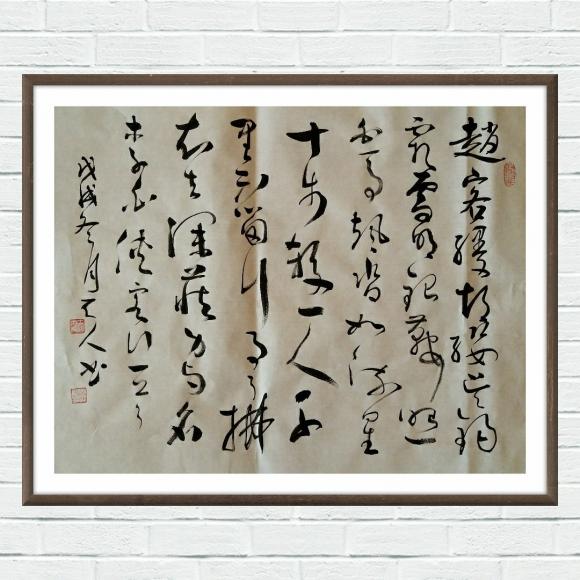 趙客縵胡纓吳鈎
霜雪明銀鞍照
白馬颯沓如流星
十步殺一人千
里不留行事了拂
衣去深藏身與名
李白俠客行
戊戌冬月人书